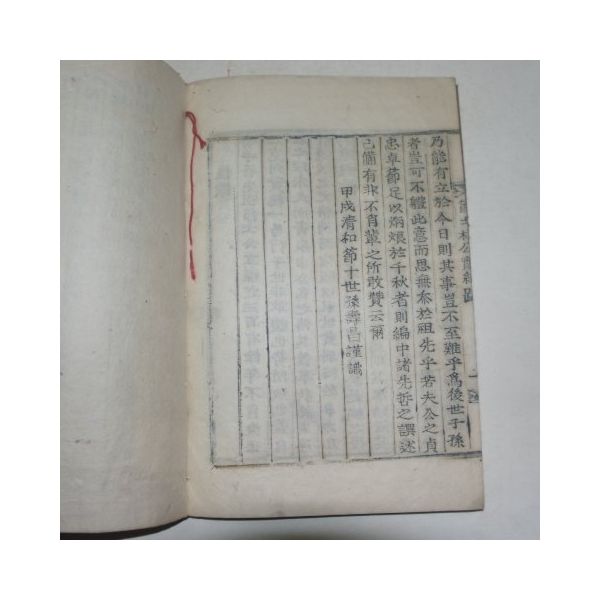 乃能有立於今日則其事豈不至難乎爲後世子孫
者豈可不體此意而思無忝於祖先乎若夫公之貞
忠卓節足以炳烺於千秋者則編中諸先哲之譔述
已備有非不肖輩之所敢贊云爾
甲戌淸和節十世孫壽昌謹識